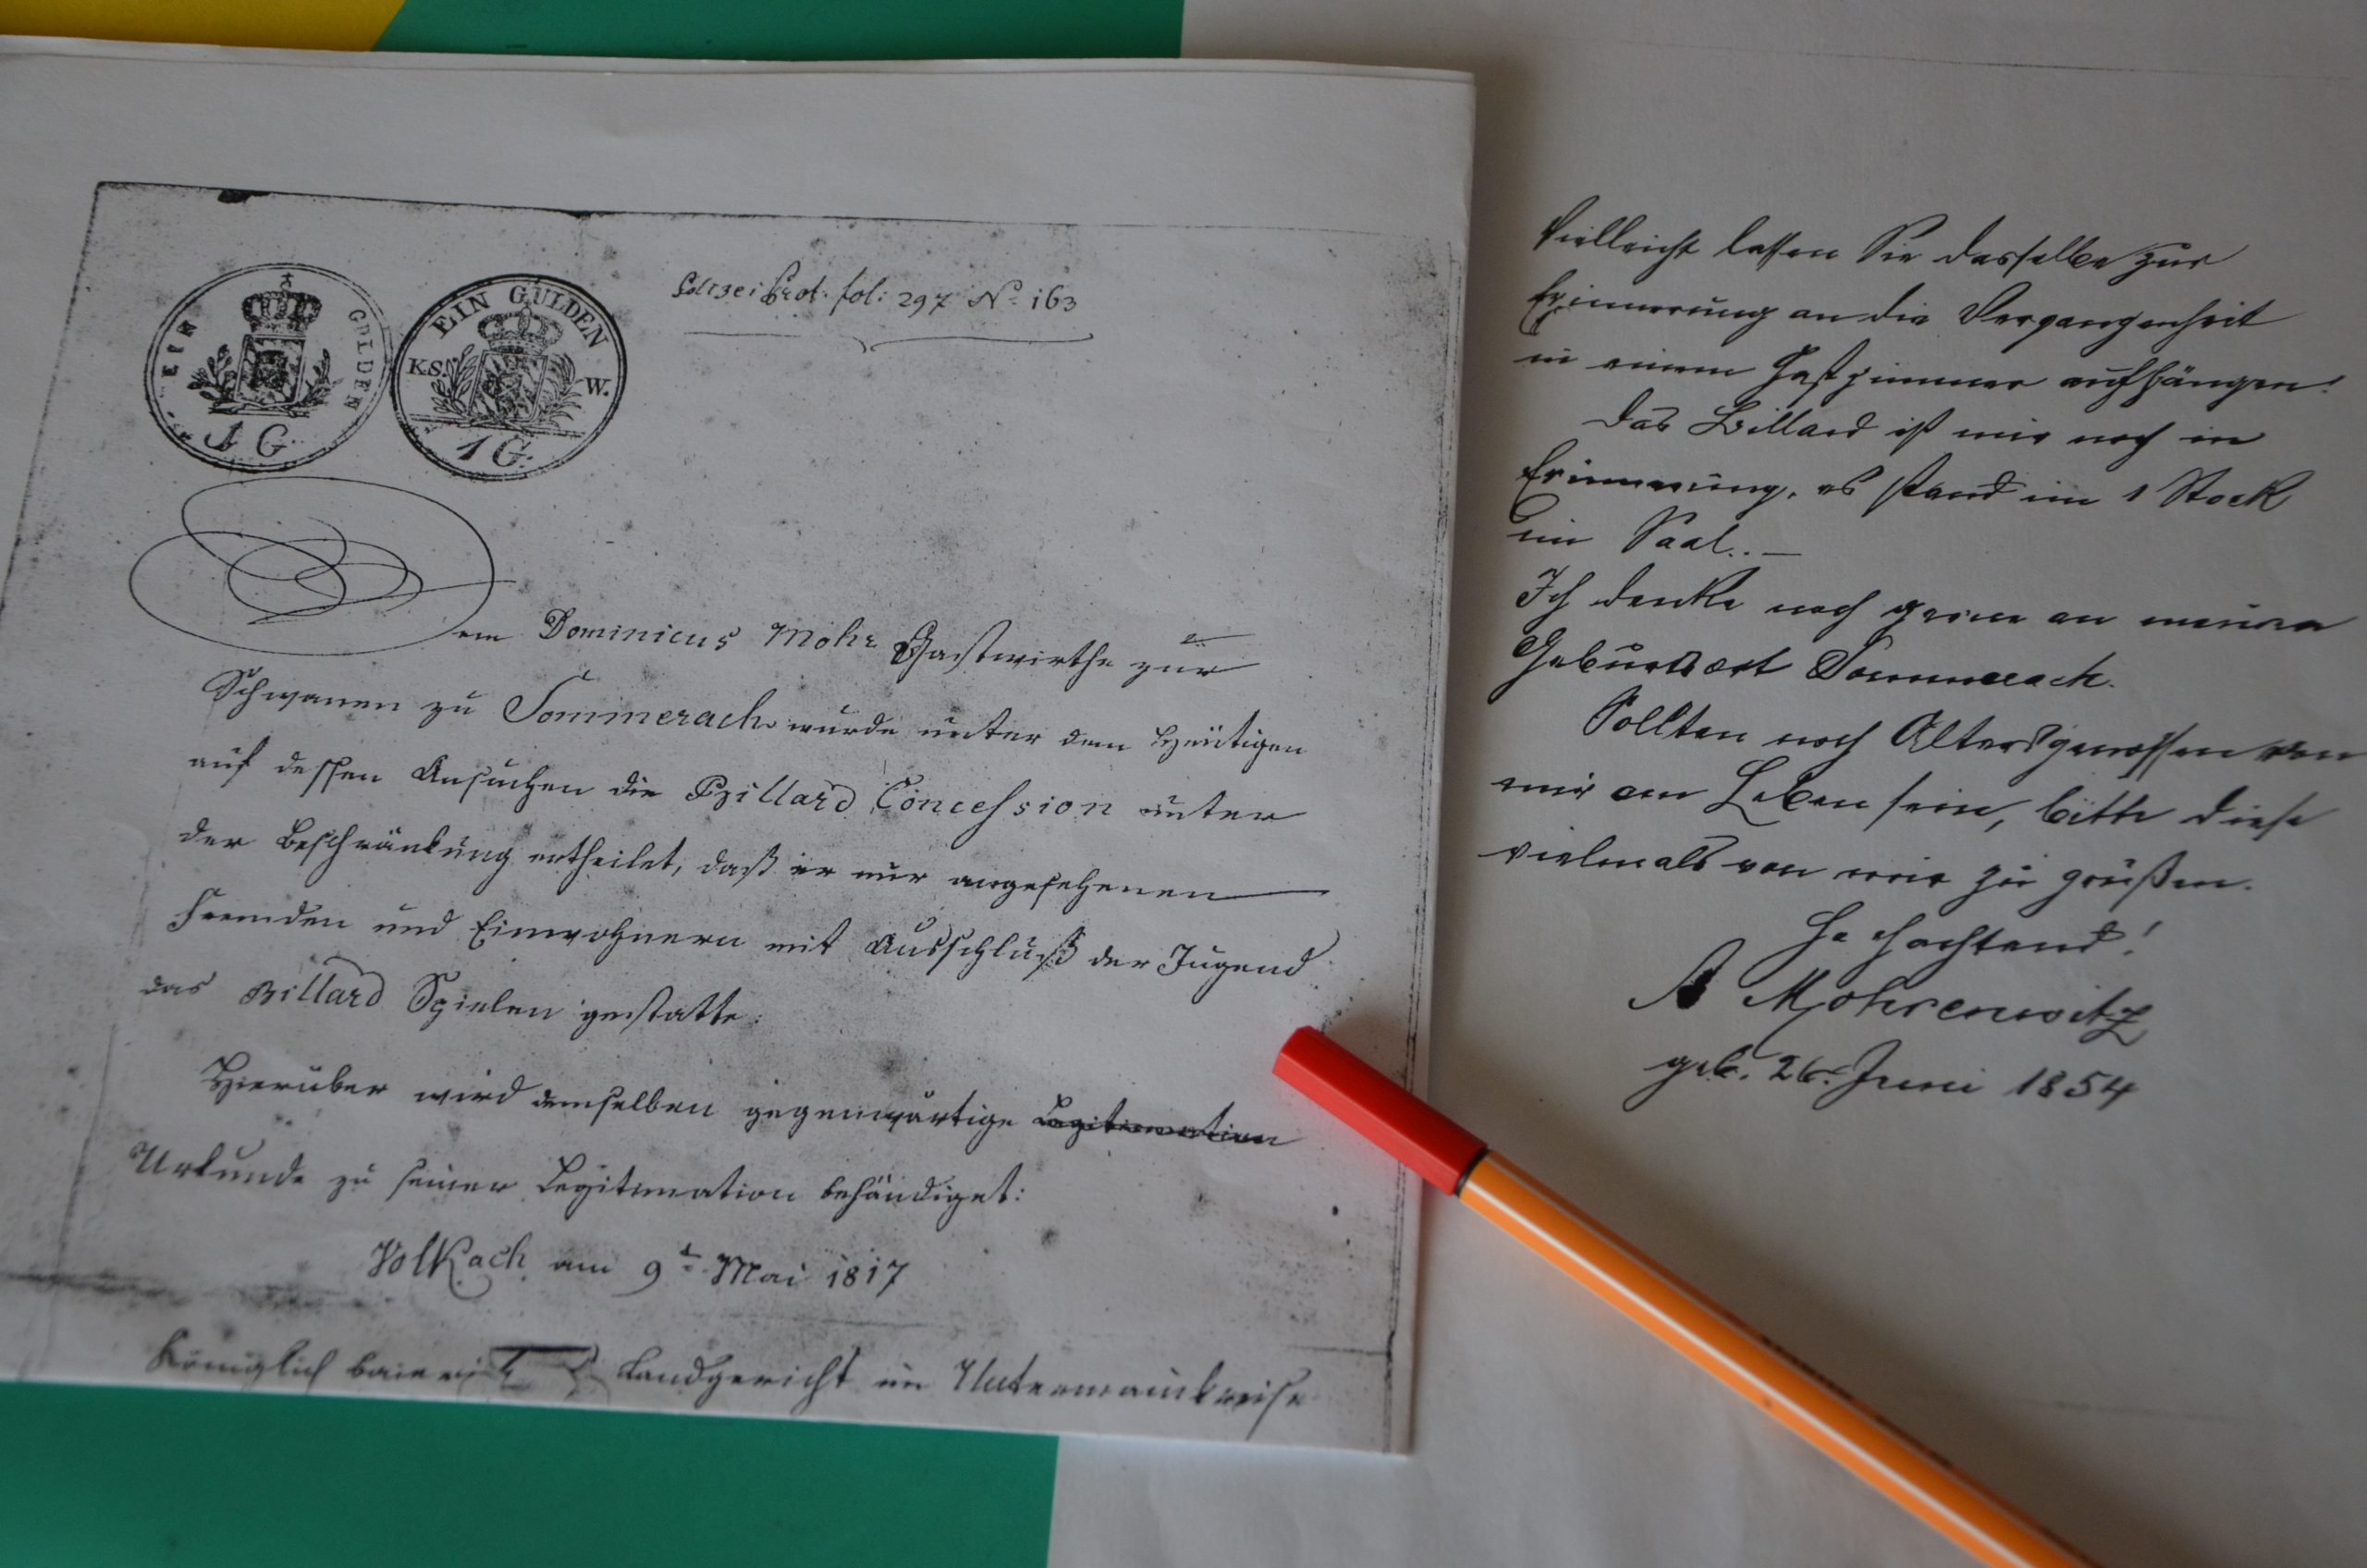 EIN GULDEN
1 G.
EIN GULDEN
K.S. W.
1 G.
Polizei Prot. fol: 297 No 163
Dem Dominicus Mohr Gastwirthe zur
Schwanen zu Sommerach wurde unter dem Heütigen
auf dessen Ansuchen die Billard Concession unter
der Beschränkung ertheilet, daß er nur angesehenen
Fremden und Einwohnern mit Ausschluß der Jugend
das Billard Spielen gestatte.
Hierüber wird demselben gegenwärtige Legitimation
Urkunde zu seiner Legitimation behändiget:
Volkach am 9t Mai 1817
Königlich Landgericht im Untermainkreise
Vielleicht lassen Sie dasselbe zur
Erinnerung an die Vergangenheit
in einem Gastzimmer aufhängen!
Das Billard ist mir noch in
Erinnerung, es stand im 1 Stock
im Saal..—
Ich denke noch gerne an meinen
Geburtsort Sommerach.
Sollten noch Altersgenossen von
mir am Leben sein, bitte diese
vielmals von mir zu grüßen.
Hochachtend!
A Mohrenwitz
geb. 26. Juni 1854